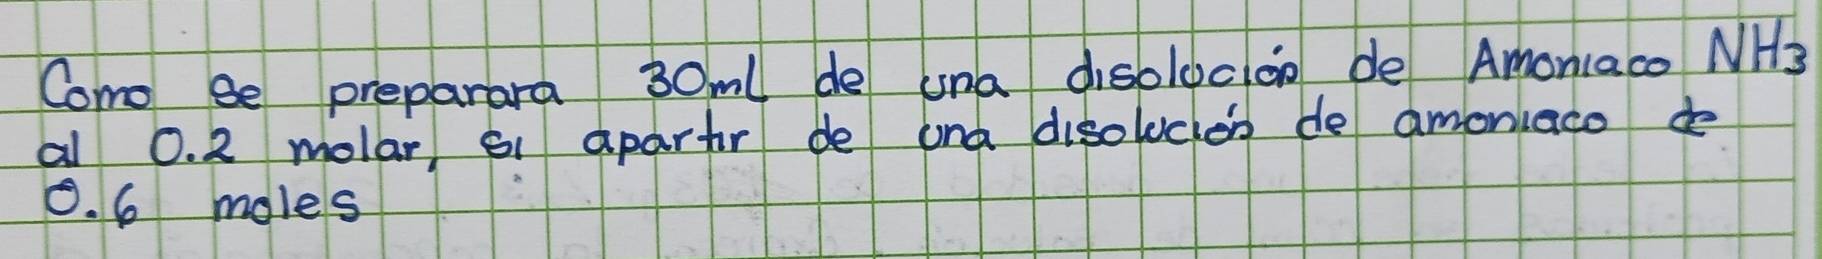 Como se preparara 30ml de una disolución de Amoniaco NH3
al 0.2 molar, si apartir de una disolución de amoniaco de
0.6 moles